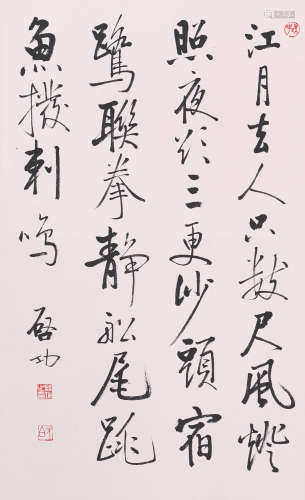 江月去人只数尺風燈
照夜欲三更沙頭宿
鷺聯拳静船尾跳
魚撥剌鳴
啓功